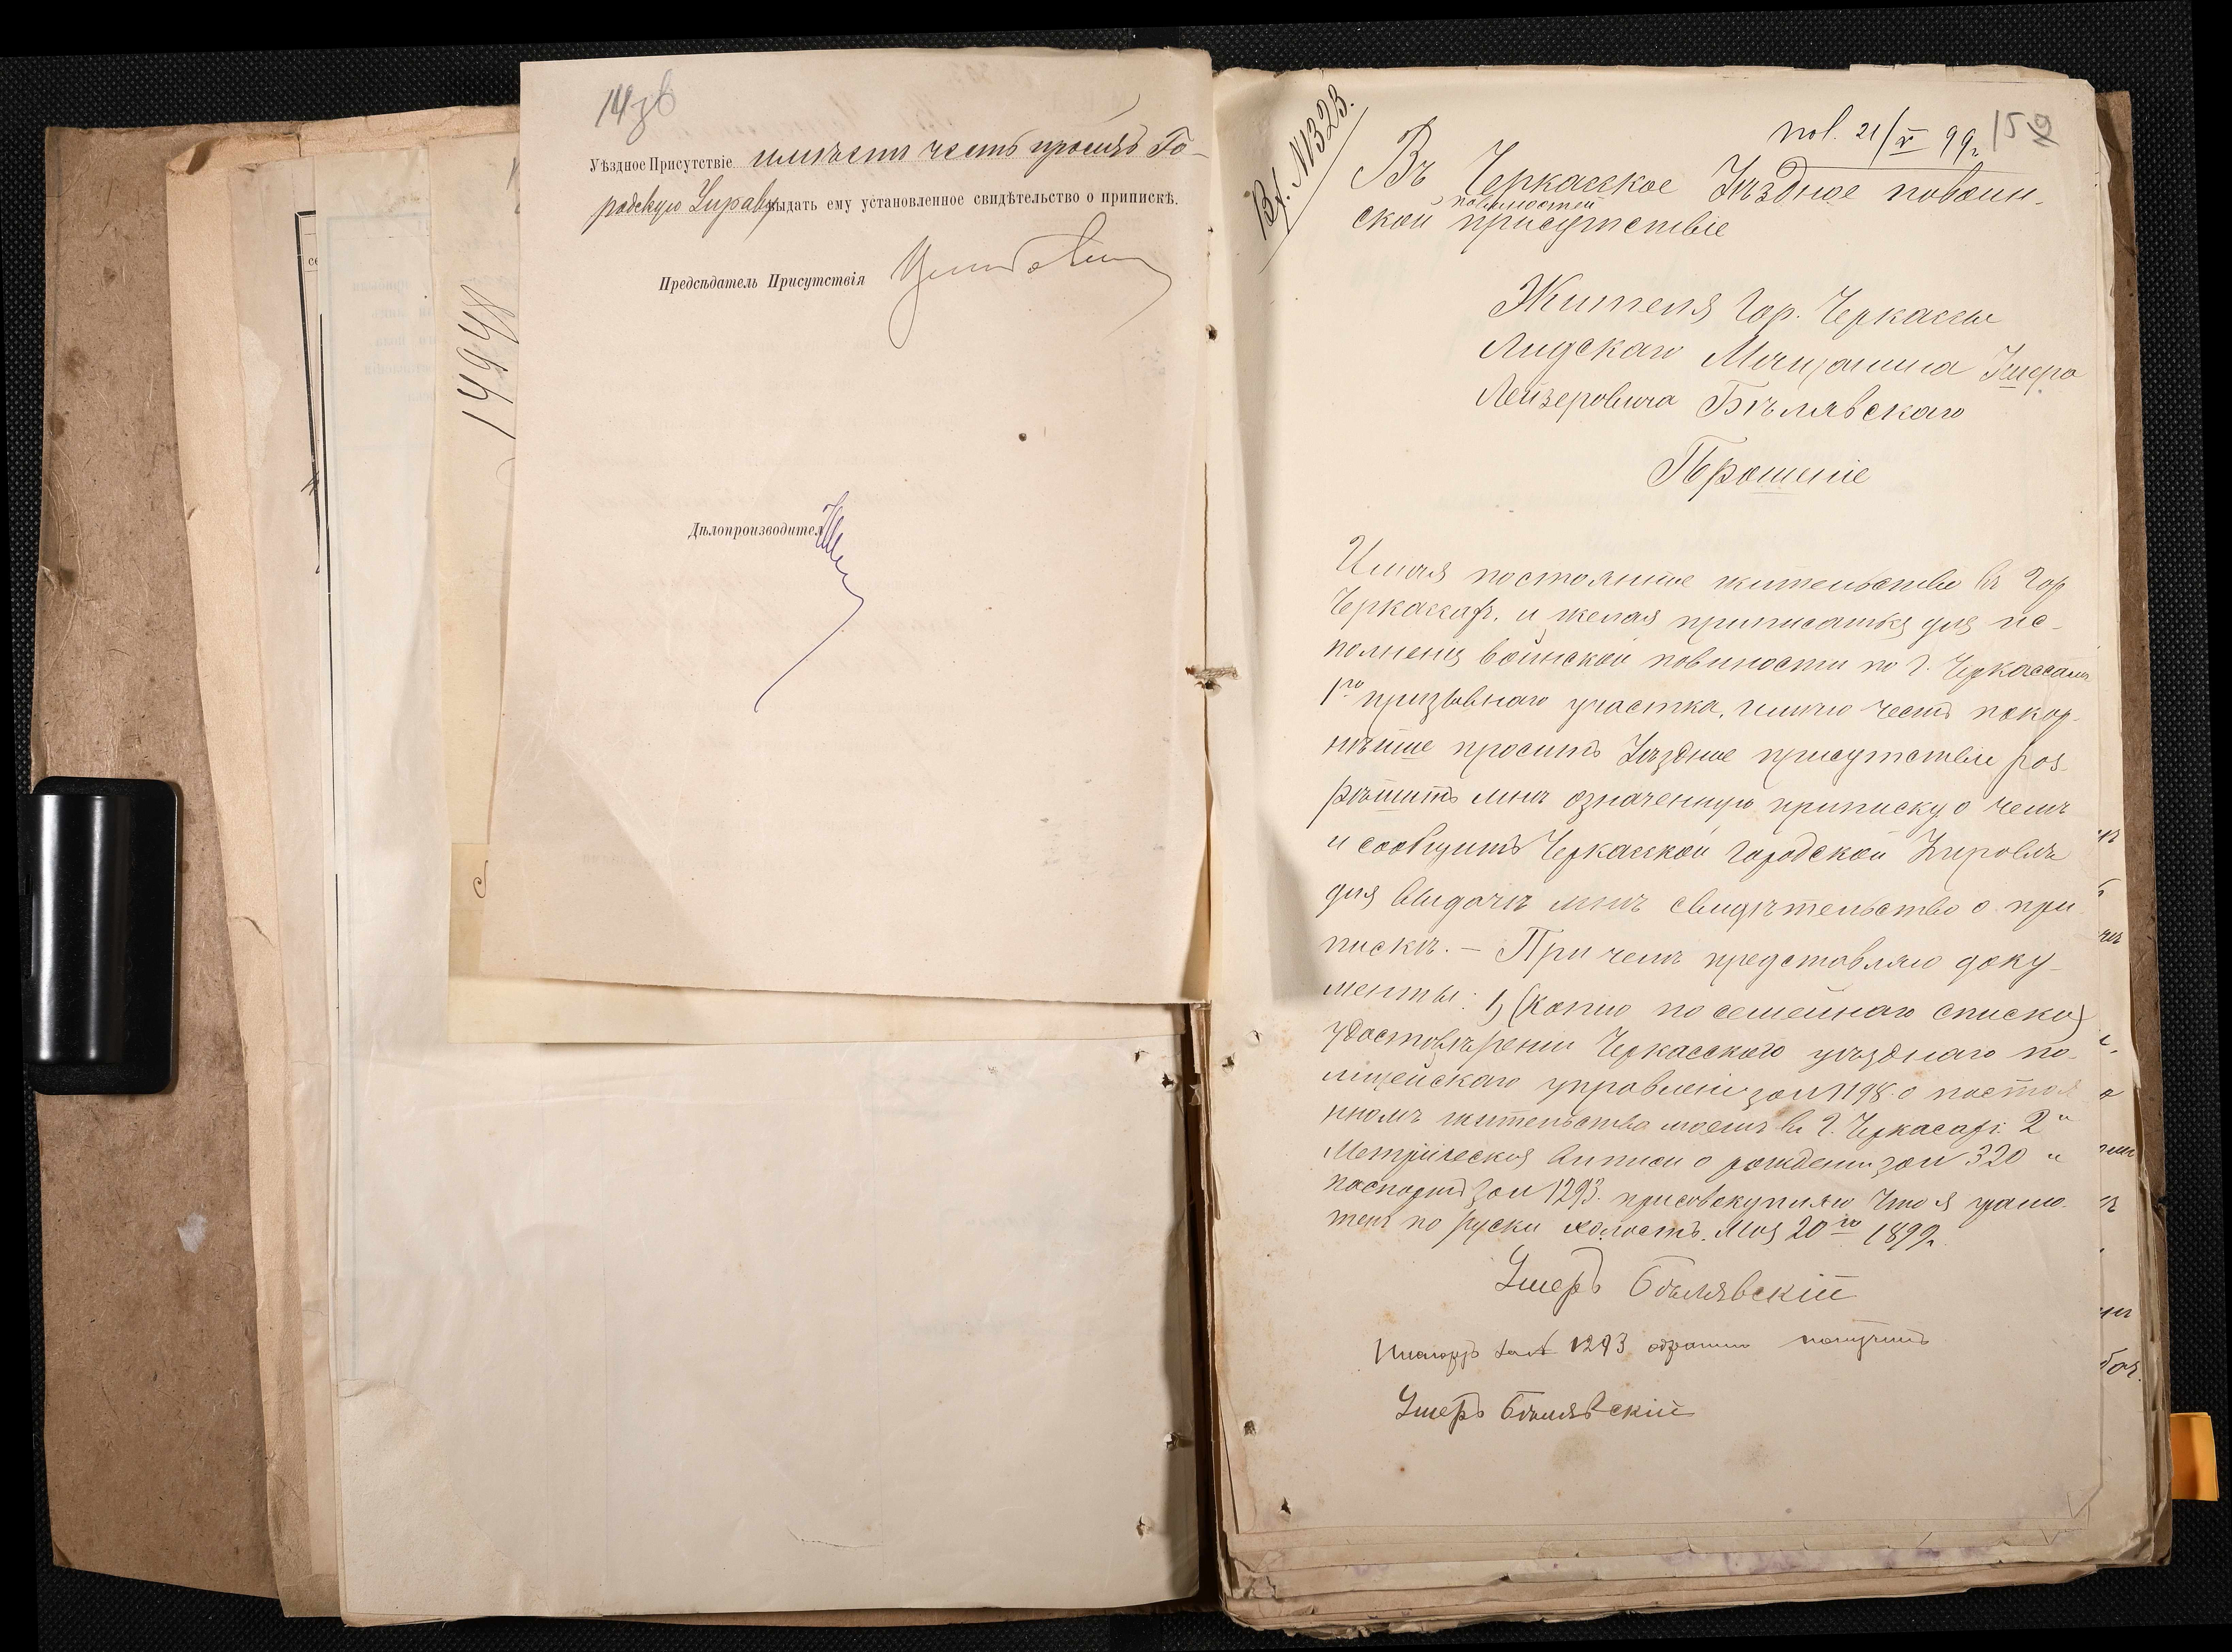 14 об
Уѣздное Присутствіе имѣетъ честь просить Го-
родскую Управу выдать ему установленное свидѣтельство о припискѣ.
Предсѣдатель Присутствія
Дѣлопроизводитель
14948
Вх. №1323.
пол. 21/V 99г.
15
Въ Черкасское Уѣздное по воин-
повинностей
ской присутствіе
Жителя гор. Черкассы
Лидскаго Мѣщанина Ушера
Лейзеровича Бѣлявскаго
Прошеніе
Имѣя постоянное жительство въ гор
Черкассахъ. и желая приписаться для ис-
полненія воинской повиности по г. Черкассамъ
1го призывнаго участка, имѣю честь покор-
нѣйше просить Уѣздное присутствіе раз
рѣшить мнѣ означенную приписку о чемъ
и сообщить Черкасской городской Управѣ
для выдачи мнѣ свидѣтельство о при
пискѣ. — При чемъ представляю доку-
менты: 1) (Копію посемейнаго списка)
удостовѣреніи Черкасского уѣзднаго по-
лицейскаго управленія за N 1198. о постоя
нномъ жительство моемъ въ г. Черкасахъ 2 и
Метрическая выписи о рожденіи за N 320 и
паспортъ за N 1293. присовокупляю что я грамо-
тенъ по руски холостъ. Мая 20го 1899г
Ушеръ Бѣлявскій
за № 1293 обратно получилъ
Ушеръ Бѣлявскій